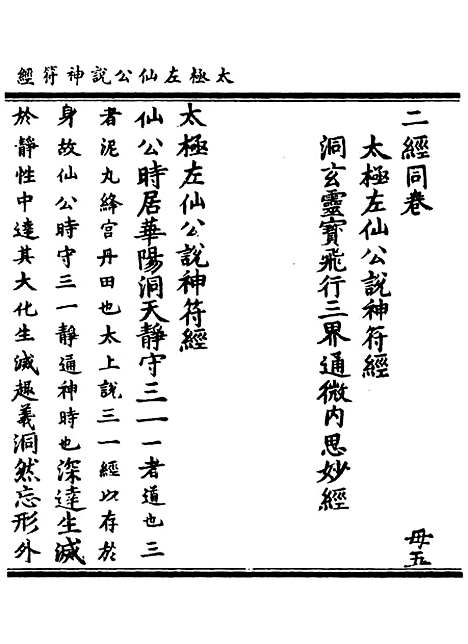 太極左仙公說神符經
二經同卷
太極左仙公說神符經
洞玄靈寶飛行三界通微內思妙經
毋五
太極左仙公說神符經
仙公時居華陽洞天靜守三一一者道也三
者泥丸絳宮丹田也太上說三一經以存於
身故仙公時守三一靜通神時也深達生滅
於靜性中達其大化生滅趣義洞然忘形外